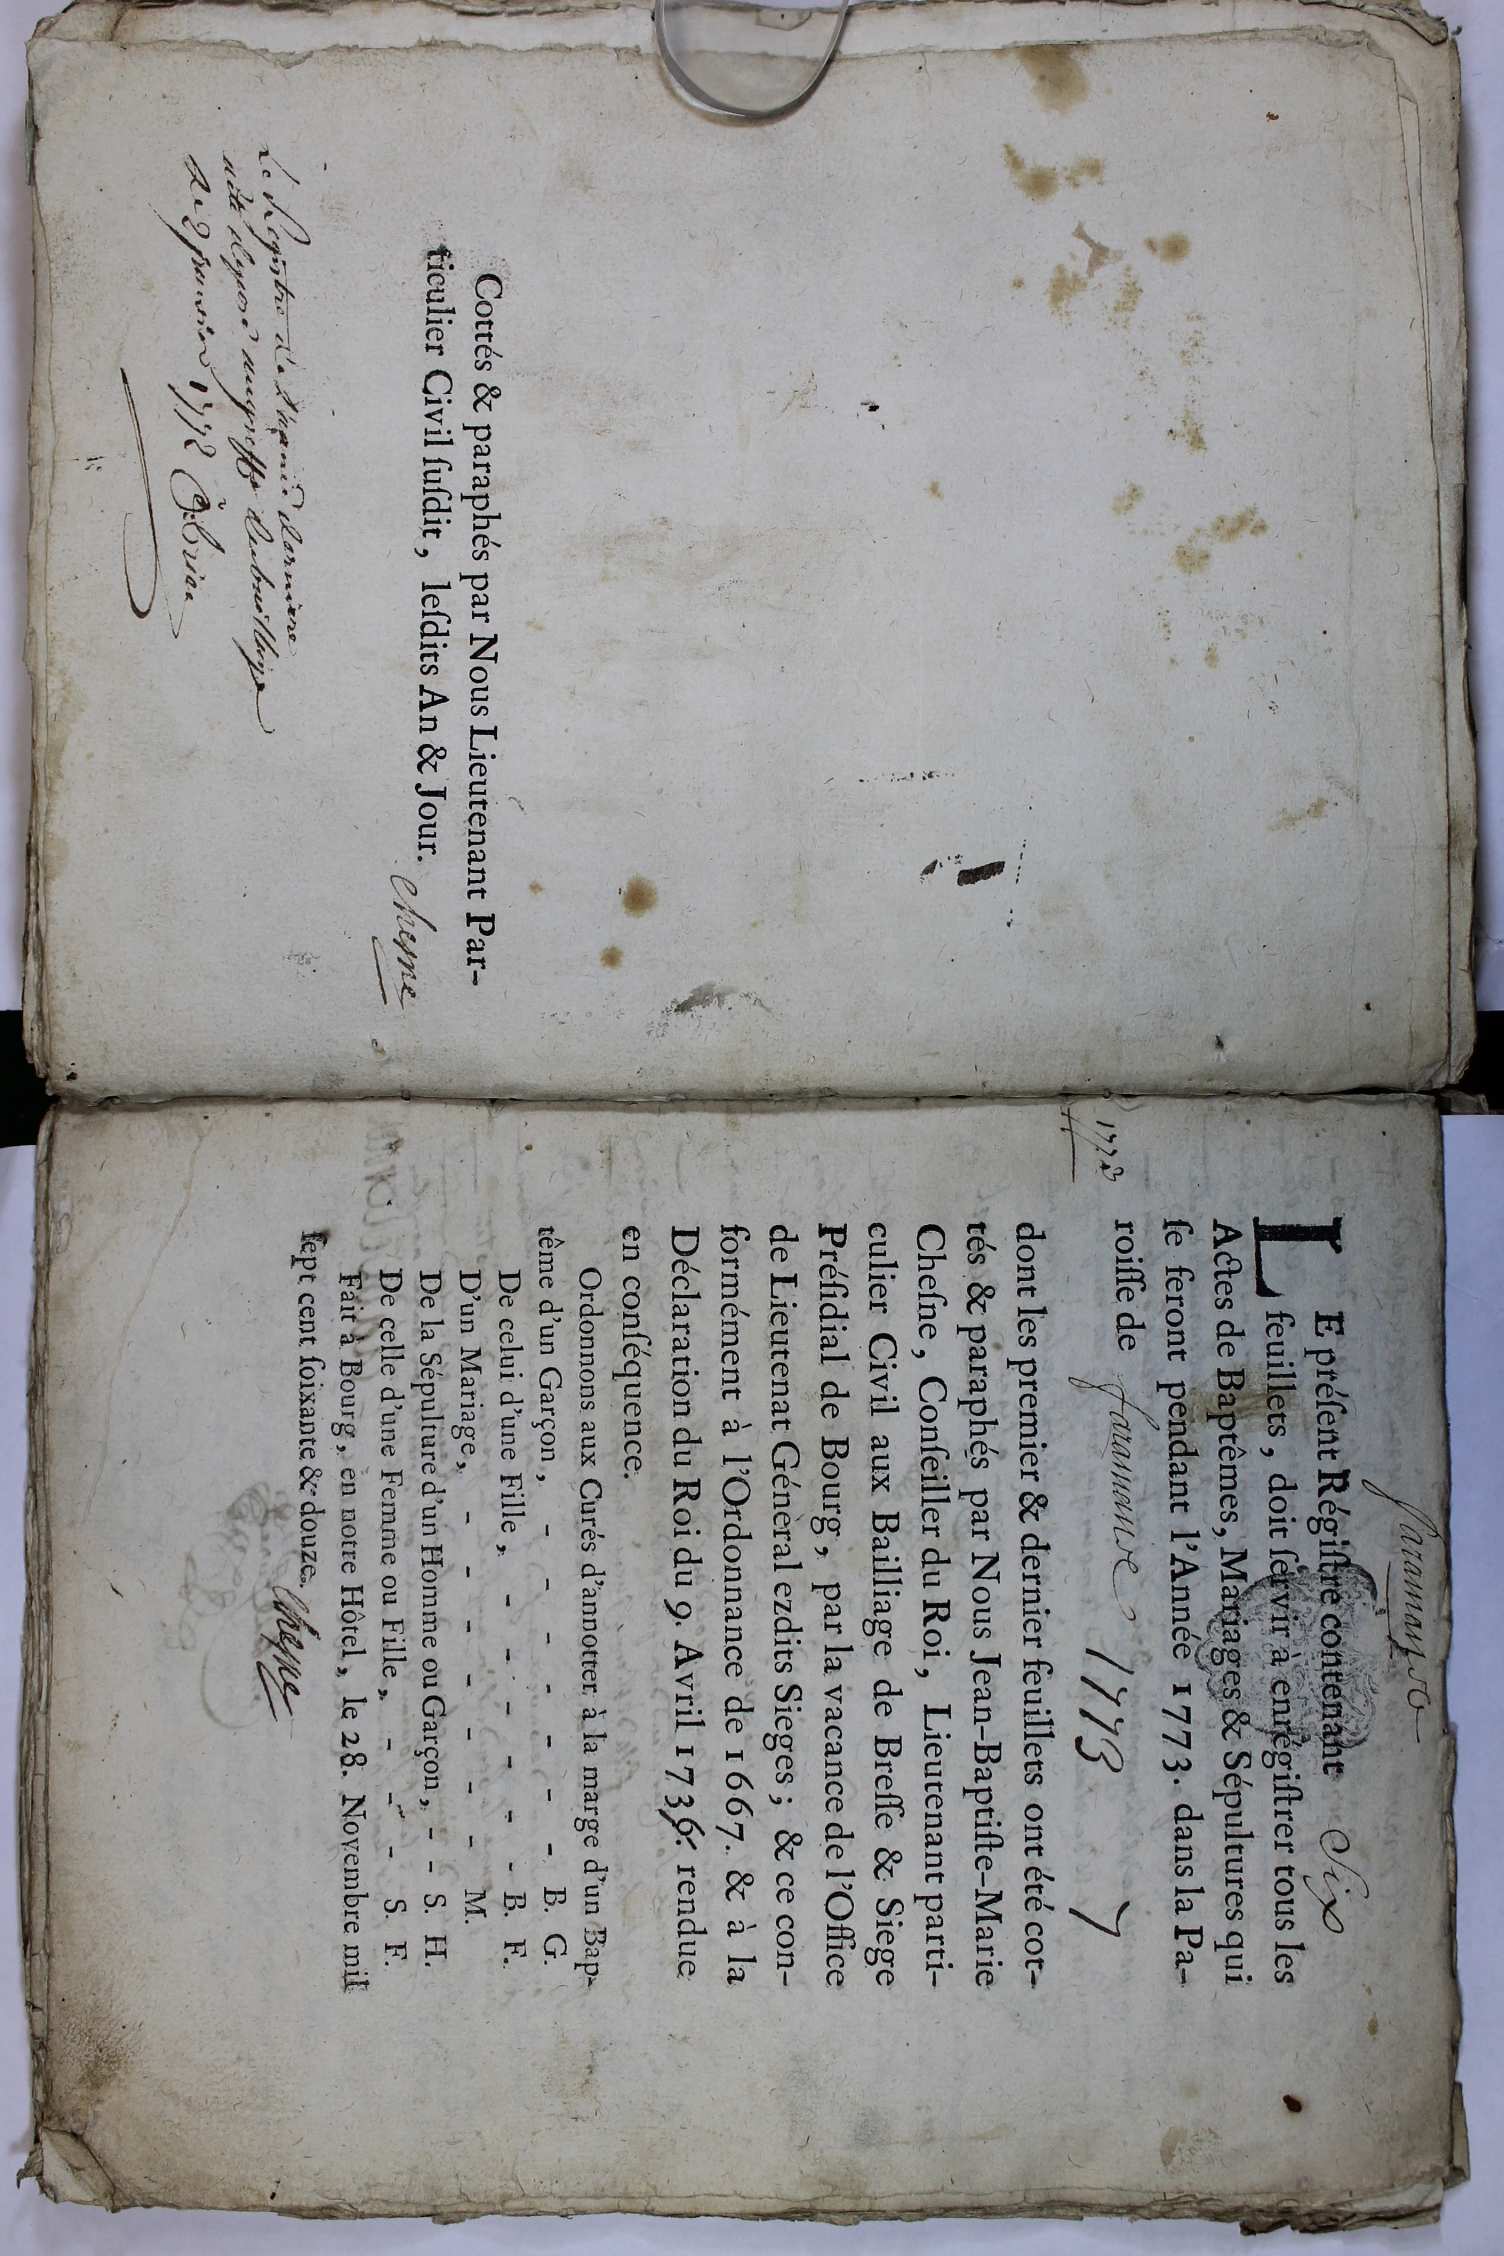 Cottés & paraphés par Nous Lieutenant Par-
ticulier Civil ſuſdit, leſdits An & Jour.
Cheſne
Le Regiſtre de L'année derniere
a été depoſé au greffe du bailliage
le 9 janvier 1772
Faramans
LE préſent Régiſtre contenant Six
feuillets, doit ſervir à enrégiſtrer tous les
Actes de Baptêmes, Mariages & Sépultures qui
ſe feront pendant l'Année 1773. dans la Pa-
roiſſe de 1773
1773
dont les premier & dernier feuillets ont été cot-
tés & paraphés par Nous Jean-Baptiſte-Marie
Cheſne, Conſeiller du Roi, Lieutenant parti-
culier Civil aux Bailliage de Breſſe & Siege
Préſidial de Bourg, par la vacance de l'Office
de Lieutenat Géneral ezdits Sieges; & ce con-
formément à l'Ordonnance de 1667. & à la
Déclaration du Roi du 9. Avril 1736. rendue
en conſéquence.
Ordonnons aux Curés d'annotter à la marge d'un Bap-
tême d'un Garçon, - - - - - B. G.
De celui d'une Fille, - - - - - B. F.
D'un Mariage, - - - - - - M.
De la Sépulture d'un Homme ou Garçon, - - S. H.
De celle d'une Femme ou Fille, - - - S. F.
Fait à Bourg, en notre Hôtel, le 28. Novembre mil
ſept cent ſoixante & douze. Cheſne